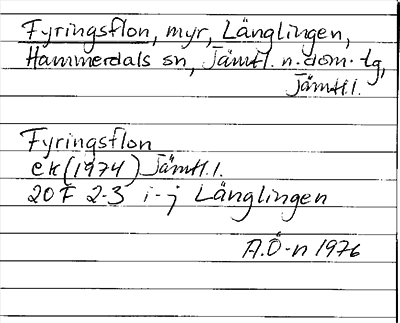 Fyringsflon, myr, Länglingen,
Hammerdals sn, Jämtl. n. dom. tg,
Jämtl.l.
Fyringsflon
ek (1974) Jämtl.l.
20 F 2-3 i-j Länglingen
A.Ö-n 1976